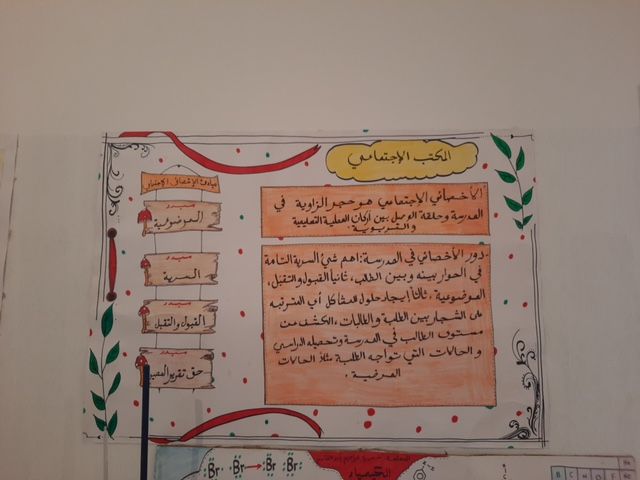 المكتب الإجتماعي
الأخصائي الإجتماعي هو حجر الزاوية في
المدرسة وحلقة الوصل بين اركان العملية التعليمية
والتربوية.
دور الأخصائي في المدرسة: اهم شئ السرية التامة
في الحوار بينه وبين الطلبه، ثانياً القبول والتقبل،
الموضوعية، ثالثاً إيجاد حلول للمشاكل أي المترتبه
على الشجار بين الطلبة والطالبات، الكشف عن
مستوى الطالب في المدرسة وتحصيله الدراسي
والحالات التي تواجه الطلبة مثلاً الحالات
المرضية.
مبادئ الإخصائي الإجتماعي
مبدء
الموضوعية
مبدء
السرية
مبدء
القبول والتقبل
مبدء
حق تقرير المصير
Br Br → Br Br
الكيمياء
B C N O F Ne